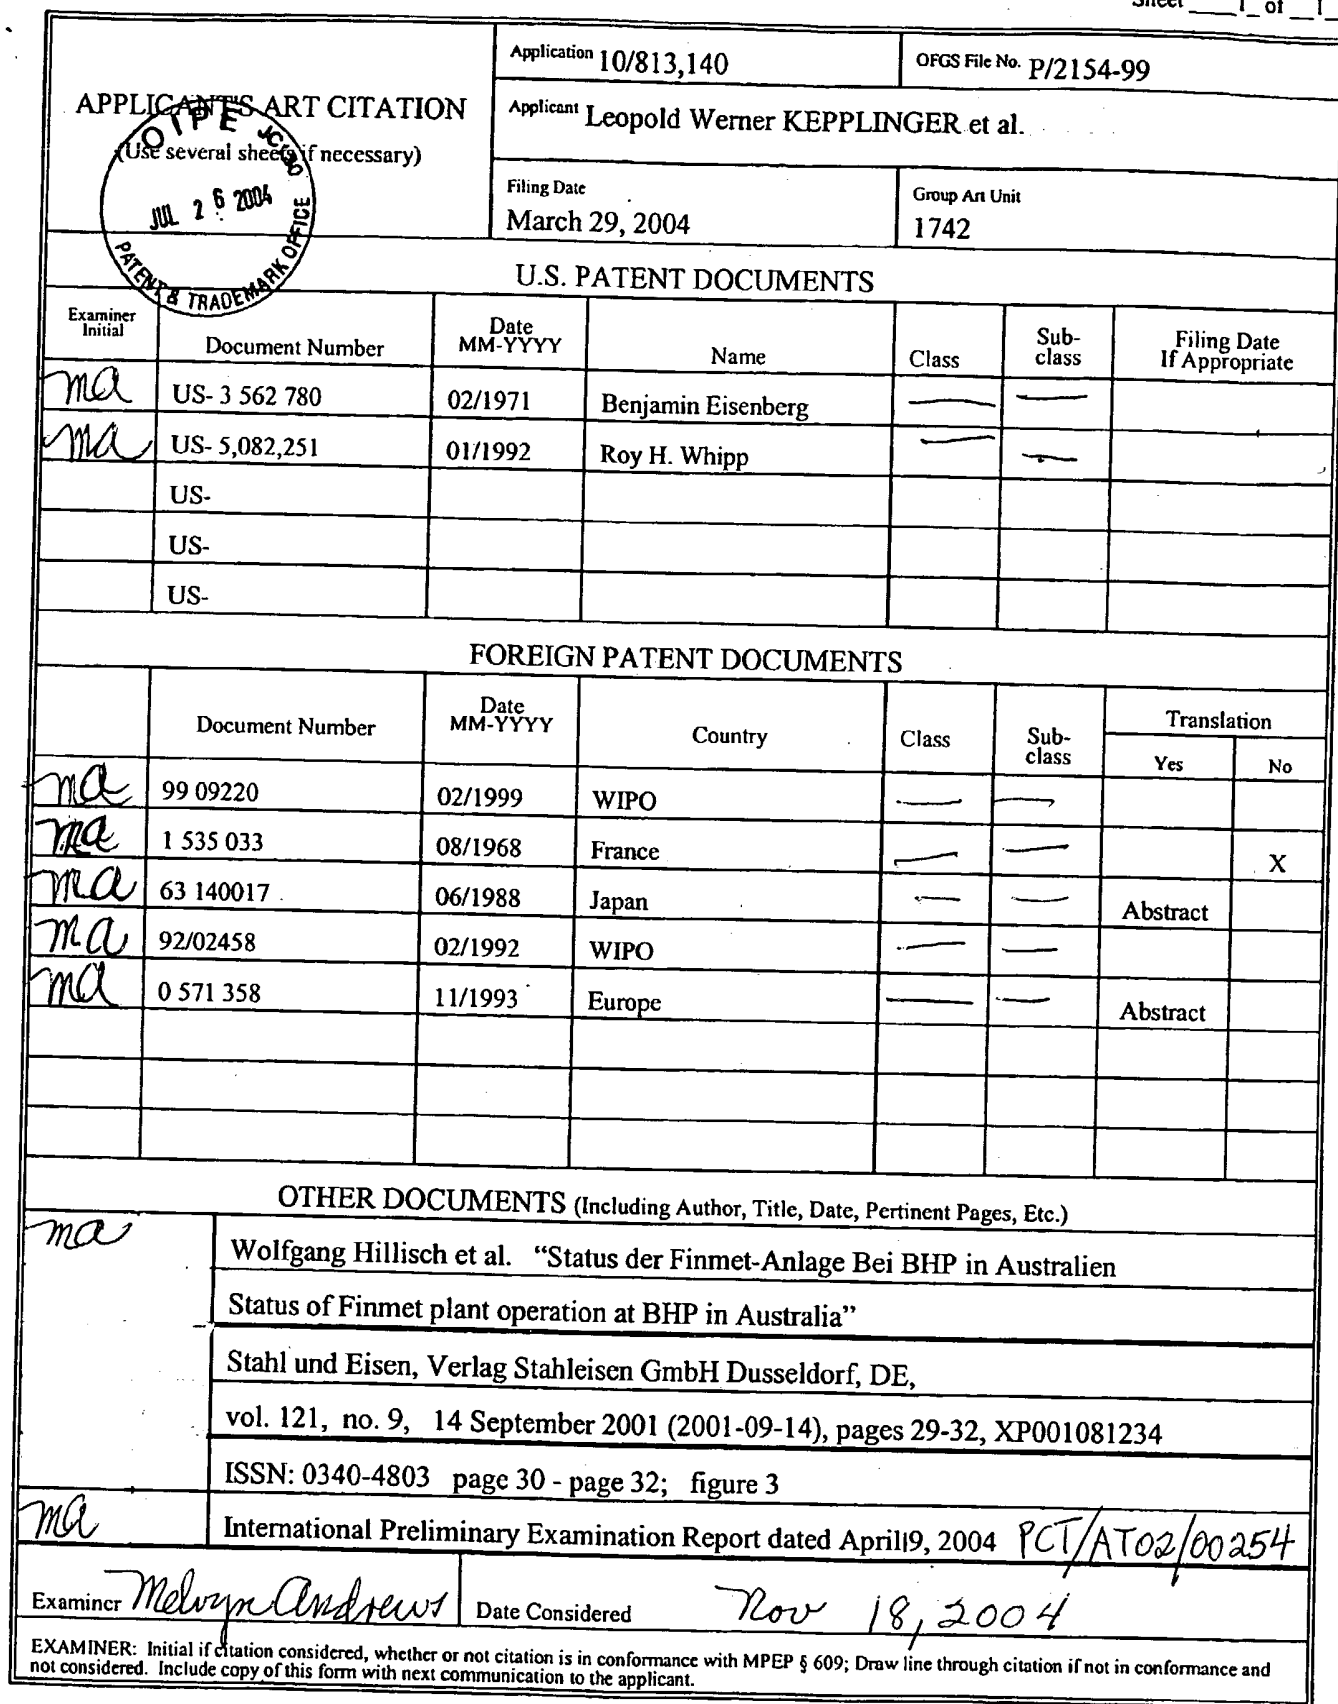 Sheet 1 of 1
Application 10/813,140
OFGS File No. P/2154-99
APPLICANT'S ART CITATION
(Use several sheets if necessary)
Applicant Leopold Werner KEPPLINGER et al.
Filing Date
March 29, 2004
Group Art Unit
1742
OIPE
JUL 26 2004
PATENT & TRADEMARK OFFICE
U.S. PATENT DOCUMENTS
Examiner Initial Document Number Date MM-YYYY Name Class Sub-class Filing Date If Appropriate
ma US- 3 562 780 02/1971 Benjamin Eisenberg
ma US- 5,082,251 01/1992 Roy H. Whipp
US-
US-
US-
FOREIGN PATENT DOCUMENTS
Document Number Date MM-YYYY Country Class Sub-class Translation Yes No
ma 99 09220 02/1999 WIPO
ma 1 535 033 08/1968 France X
ma 63 140017 06/1988 Japan Abstract
ma 92/02458 02/1992 WIPO
ma 0 571 358 11/1993 Europe Abstract
OTHER DOCUMENTS (Including Author, Title, Date, Pertinent Pages, Etc.)
ma Wolfgang Hillisch et al. “Status der Finmet-Anlage Bei BHP in Australien
Status of Finmet plant operation at BHP in Australia”
Stahl und Eisen, Verlag Stahleisen GmbH Dusseldorf, DE,
vol. 121, no. 9, 14 September 2001 (2001-09-14), pages 29-32, XP001081234
ISSN: 0340-4803 page 30 - page 32; figure 3
ma International Preliminary Examination Report dated April 9, 2004 PCT/AT02/00254
Examiner Melvyn Andrews Date Considered Nov 18, 2004
EXAMINER: Initial if citation considered, whether or not citation is in conformance with MPEP § 609; Draw line through citation if not in conformance and
not considered. Include copy of this form with next communication to the applicant.